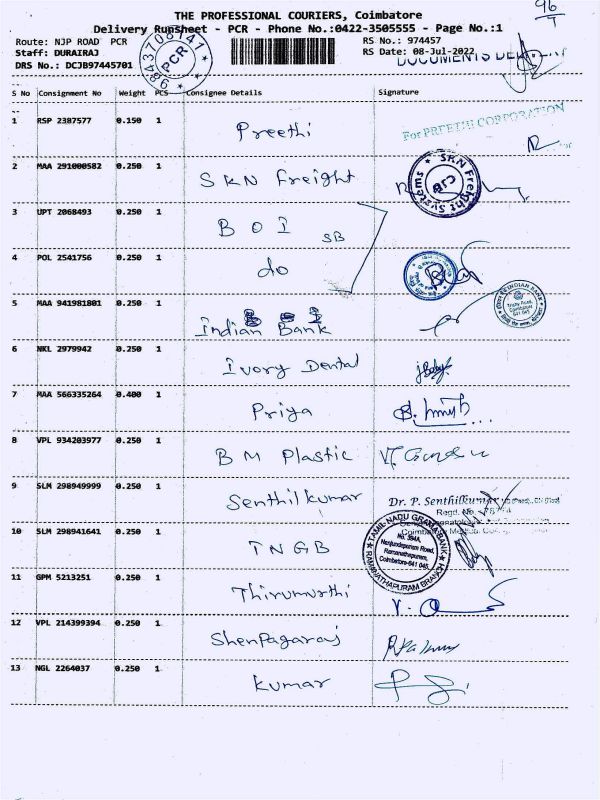 THE PROFESSIONAL COURIERS, Coimbatore
96
Delivery Runsheet - PCR - Phone No.:0422-3505555 - Page No.:1
Route: NJP ROAD PCR
RS No.: 974457
Staff: DURAIRAJ
RS Date: 08-Jul-2022
DRS No.: DCJB97445701
PCR
S No Consignment No Weight PCS Consignee Details Signature
1 RSP 2387577 0.150 1 Preethi For PREETHI CORPORATION
2 MAA 291000582 0.250 1 SKN Freight SKN Freight Systems CJB
3 UPT 2068493 0.250 1 BOI SB
4 POL 2541756 0.250 1 do
5 MAA 941981801 0.250 1 Indian Bank INDIAN BANK
6 NKL 2979942 0.250 1 Ivory Dental
7 MAA 566335264 0.400 1 Priya
8 VPL 934203977 0.250 1 B M Plastic
9 SLM 298949999 0.250 1 Senthilkumar Dr. P. Senthilkumar
Regd. No.
10 SLM 298941641 0.250 1 TNGB TAMIL NADU GRAMA BANK
No. 394A,
Nanjundapuram Road,
Ramanathapuram,
Coimbatore-641 045.
RAMNATHAPURAM BRANCH
11 GPM 5213251 0.250 1 Thirumurthi
12 VPL 214399394 0.250 1 Shenpagaraj
13 NGL 2264037 0.250 1 Kumar